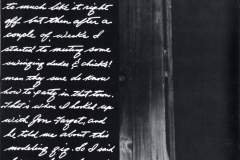 to much like it right
off but then after a
couple of weeks I
started to meeting some
swinging dudes & chicks!
man they sure do know
how to party in that town.
that is when I hooked up
with Jon Faryet, and
he told me about this
modeling gig. So I said